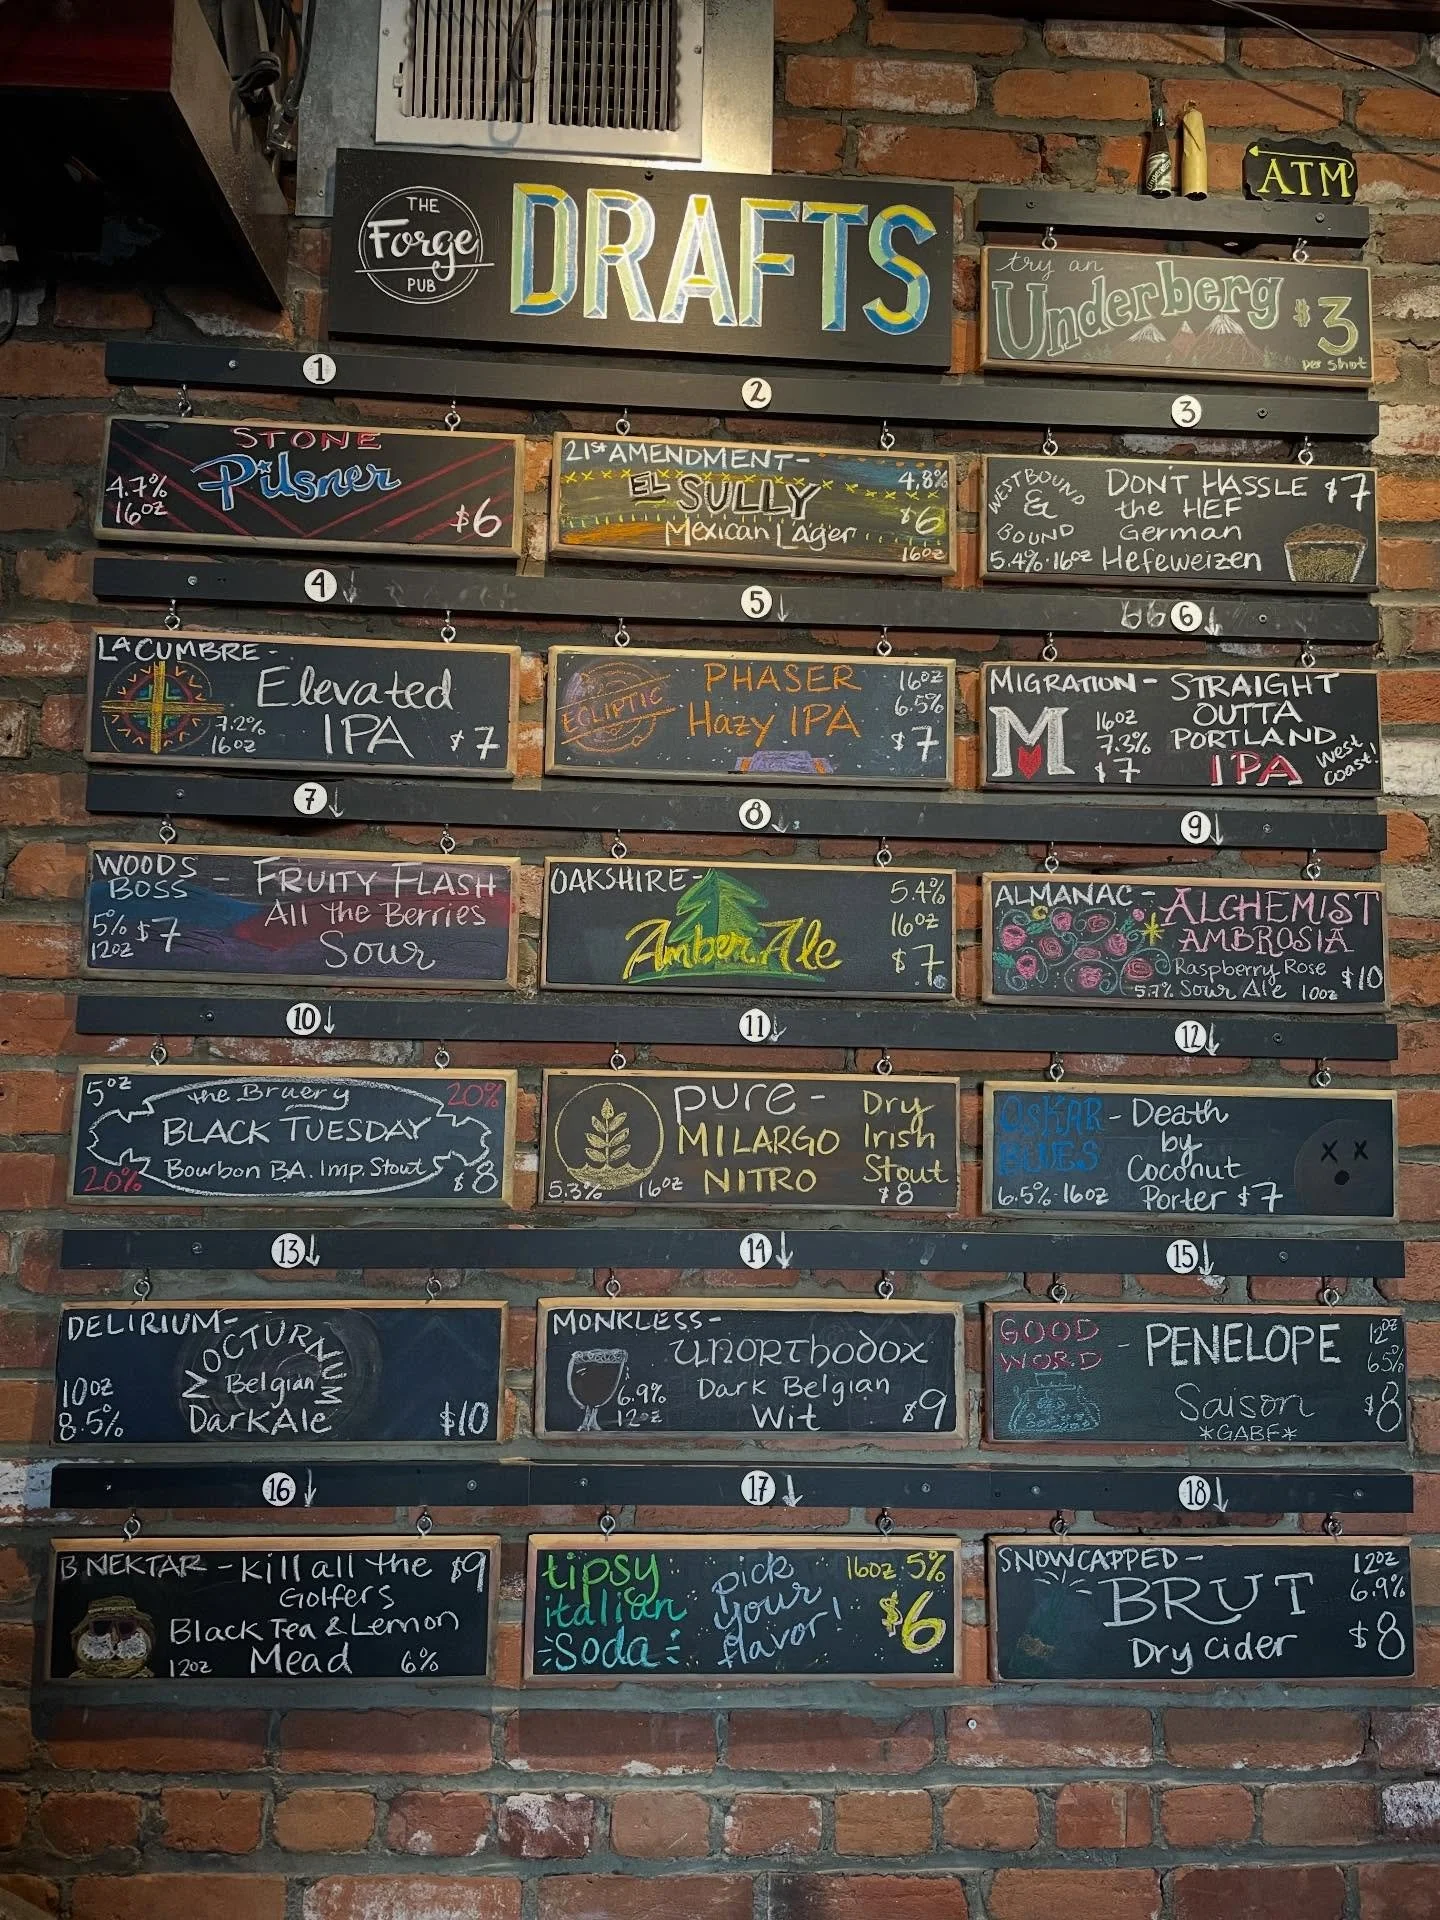 THE
Forge
PUB
DRAFTS
ATM
try an
Underberg $3
per shot
1
STONE
Pilsner
4.7%
16oz
$6
2
21st AMENDMENT-
4.8%
EL SULLY
$6
Mexican Lager
16oz
3
WESTBOUND
&
BOUND
5.4% · 16oz
DON'T HASSLE
the HEF
German
Hefeweizen
$7
4
LA CUMBRE -
Elevated
IPA
7.2%
16oz
$7
5
ECLIPTIC
PHASER
Hazy IPA
16oz
6.5%
$7
6
MIGRATION - STRAIGHT
OUTTA
PORTLAND
IPA
West
Coast!
M
16oz
7.3%
$7
7
WOODS
BOSS -
FRUITY FLASH
All the Berries
Sour
5%
12oz
$7
8
OAKSHIRE -
Amber Ale
5.4%
16oz
$7
9
ALMANAC - ALCHEMIST
AMBROSIA
Raspberry Rose
5.7% Sour Ale 10oz
$10
10
5oz
the Bruery
20%
BLACK TUESDAY
Bourbon BA. Imp. Stout
20%
$8
11
pure -
MILARGO
NITRO
Dry
Irish
Stout
$8
5.3%
16oz
12
OSKAR
BLUES
- Death
by
Coconut
Porter $7
6.5% · 16oz
X X
13
DELIRIUM -
NOCTURNUM
Belgian
Dark Ale
10oz
8.5%
$10
14
MONKLESS -
UNORThodox
Dark Belgian
Wit
6.9%
12oz
$9
15
GOOD
WORD
- PENELOPE
Saison
*GABF*
12oz
6.5%
$8
16
B NEKTAR - Kill all the
Golfers
Black Tea & Lemon
Mead
12oz
6%
$9
17
tipsy
italian
Soda
pick
your
flavor!
16oz 5%
$6
18
SNOWCAPPED -
BRUT
Dry Cider
12oz
6.9%
$8